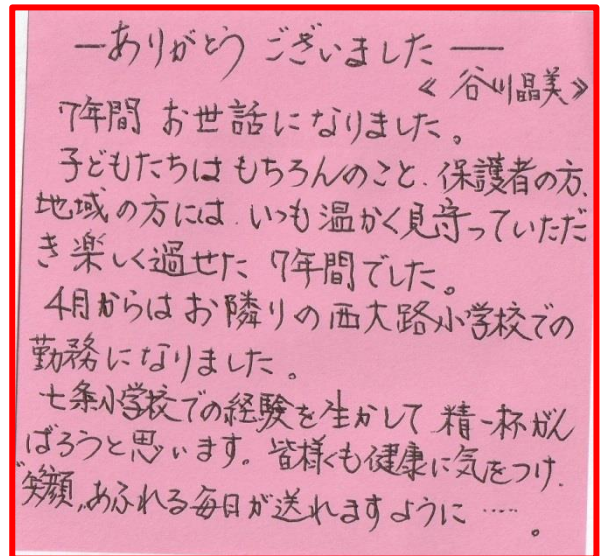 ―ありがとう ございました―
《 谷川晶美》
7年間 お世話になりました。
子どもたちは もちろんのこと、保護者の方、
地域の方には、いつも温かく見守っていただ
き楽しく過せた 7年間でした。
4月からはお隣りの西大路小学校での
勤務になりました。
七条小学校での経験を生かして 精一杯がん
ばろうと思います。皆様くも健康に気をつけ、
"笑顔〟あふれる毎日が送れますように……。